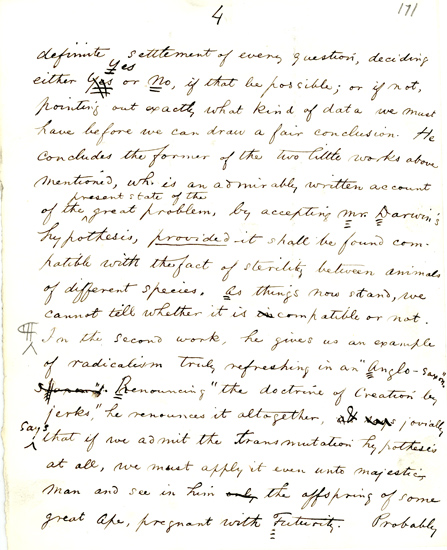 4
171
definite settlement of every question, deciding
either Yes Yes or No, if that be possible; or if not,
pointing out exactly what kind of data we must
have before we can draw a fair conclusion. He
concludes the former of the two little works above
mentioned, wh. is an admirably written account
present state of the
of the great problem, by accepting Mr. Darwin's
hypothesis, provided it shall be found com-
patible with the fact of sterility between animals
of different species. As things now stand, we
cannot tell whether it is compatible or not.
¶ In the second work, he gives us an example
of radicalism truly refreshing in an "Anglo-Saxon".
Renouncing "the doctrine of Creation by
jerks," he renounces it altogether, jovially
says that if we admit the transmutation hypothesis
at all, we must apply it even unto majestic
man and see in him only the offspring of some
great Ape, pregnant with Futurity. Probably